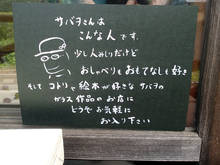 サバヲさんは
こんな人です。
少し人みしりだけど
おしゃべりもおもてなしも好き
そして コトリと絵本が好きな サバヲの
ガラス作品のお店に
どうぞ お気軽に
お入り下さい